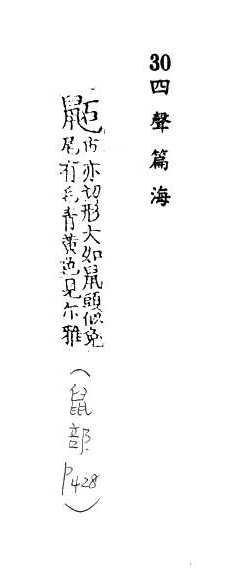 30四聲篇海
鼫时亦切形大如鼠頭似兔
尾有毛青黃色見尔雅
(鼠部P428)